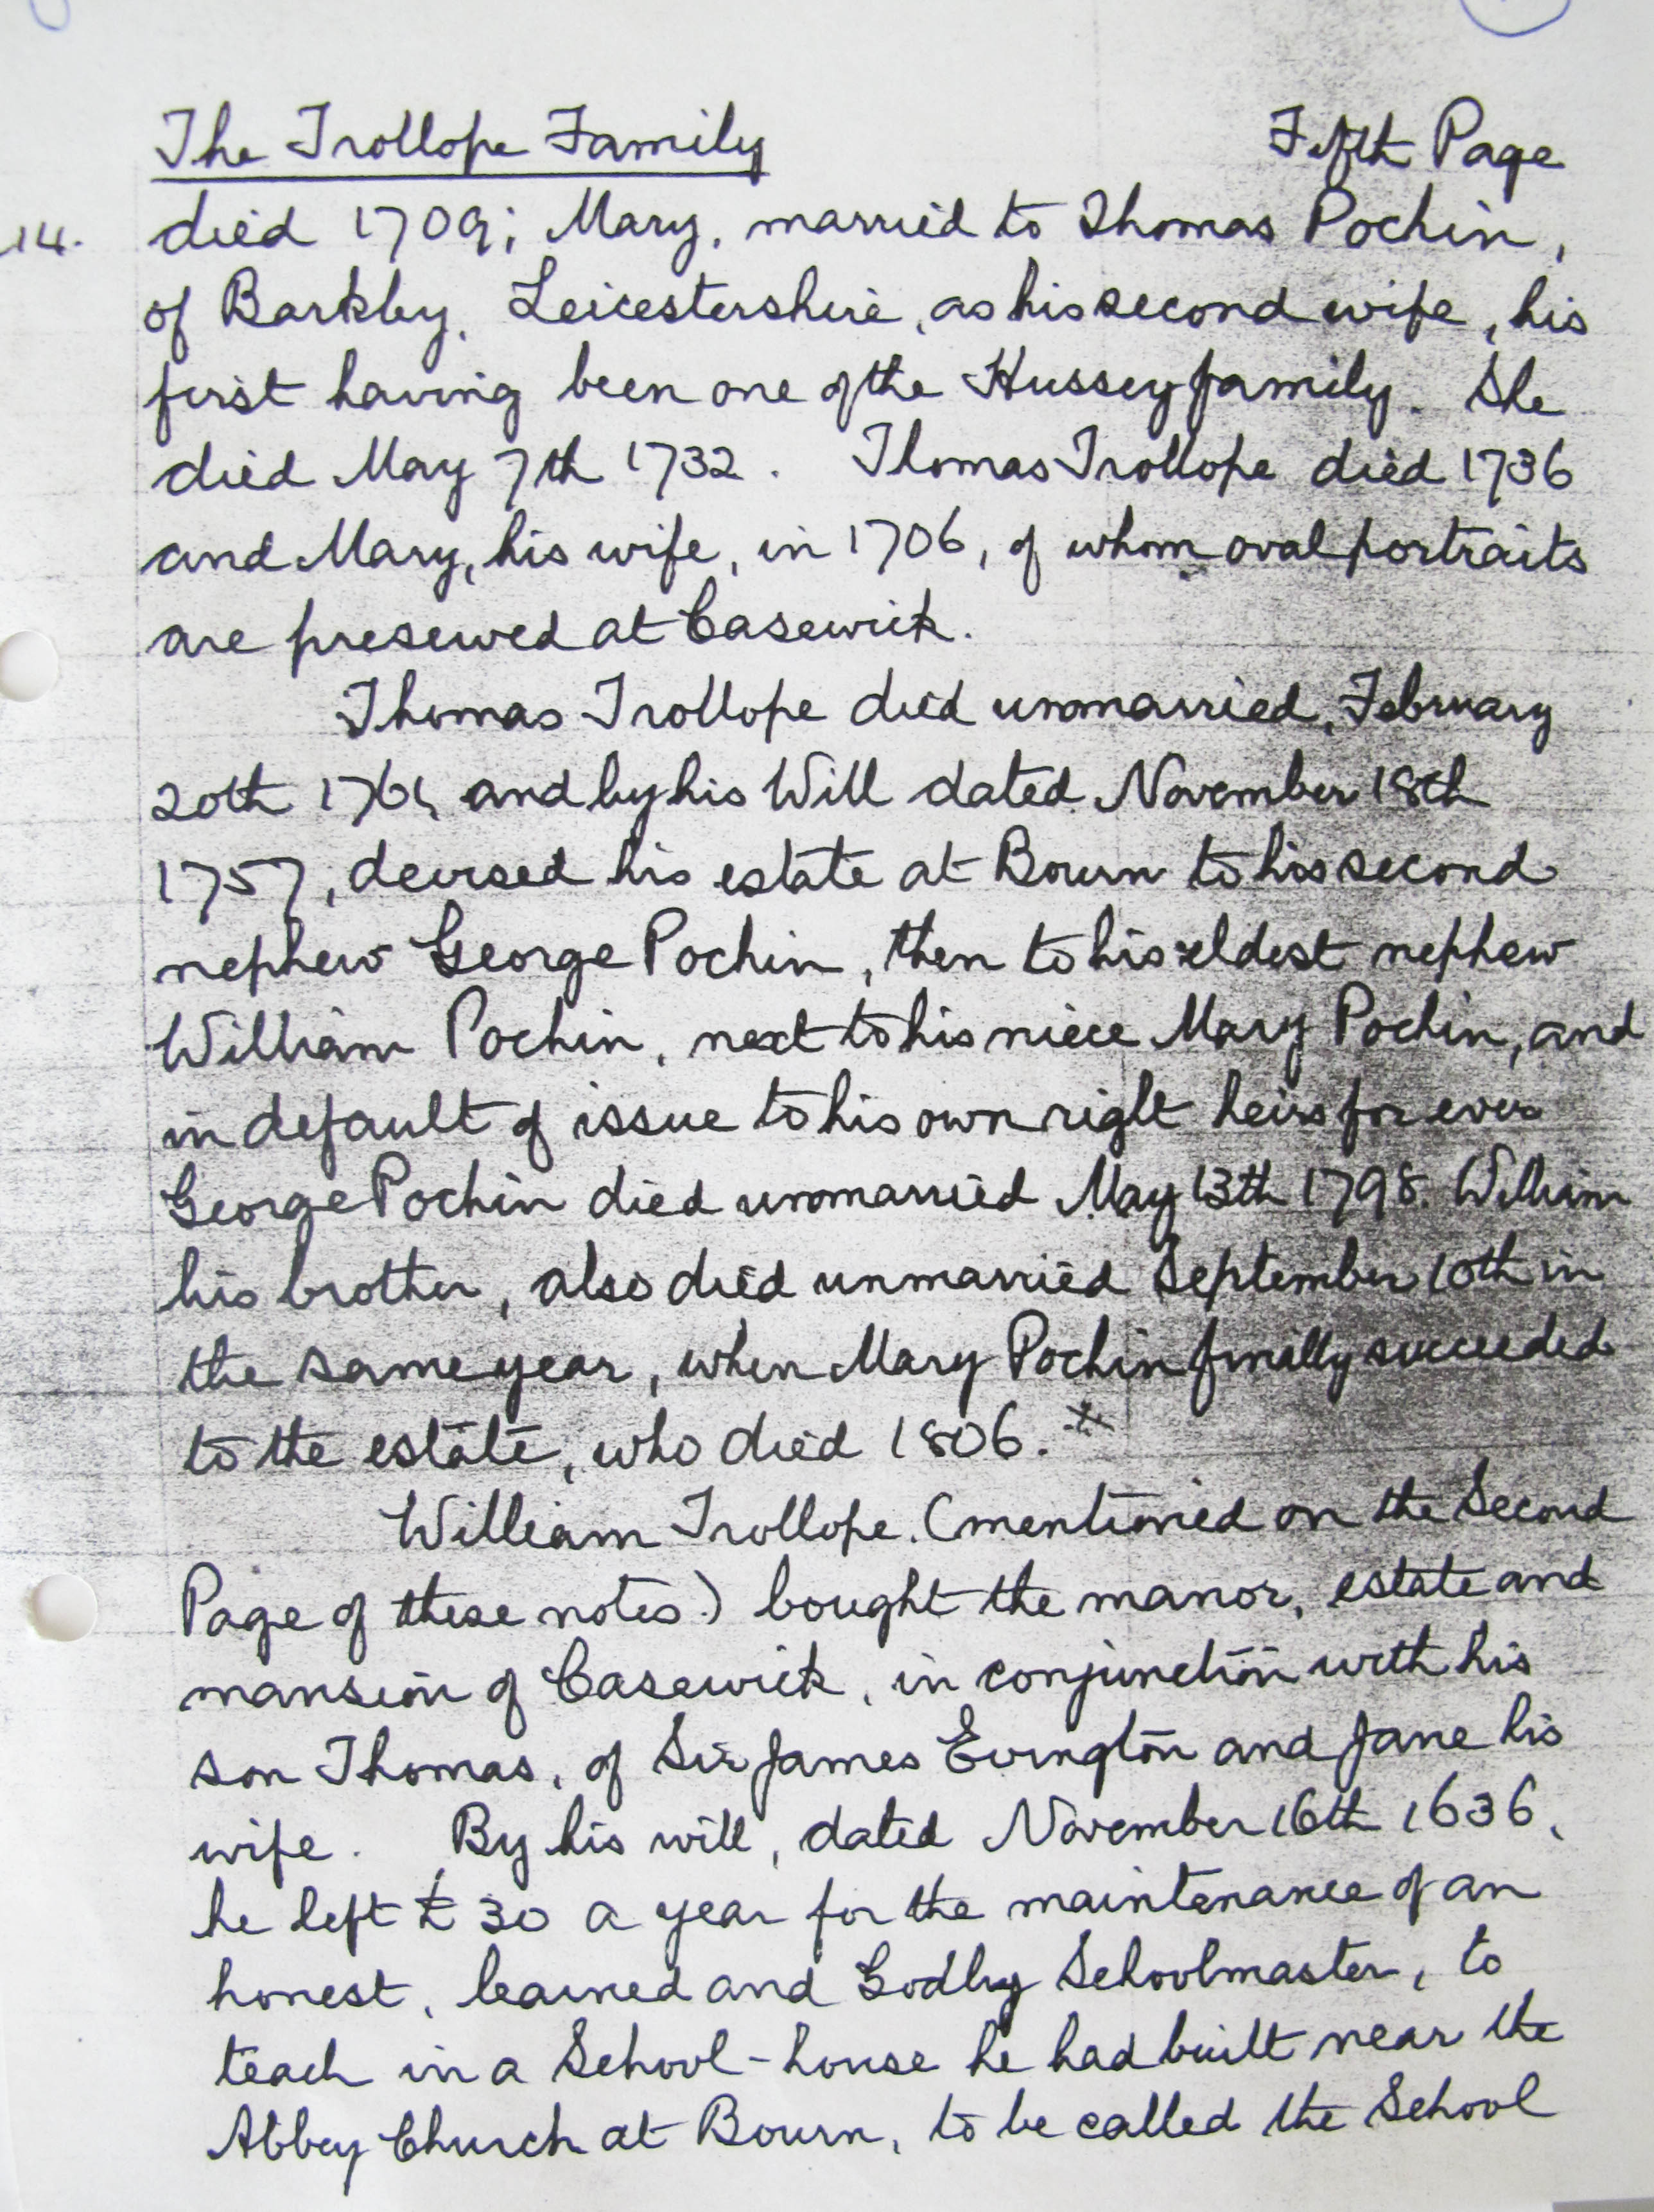 The Trollope Family Fifth Page
14. died 1709; Mary, married to Thomas Pochin,
of Barkby, Leicestershire, as his second wife, his
first having been one of the Hussey family. She
died May 7th 1732. Thomas Trollope died 1736
and Mary, his wife, in 1706, of whom oval portraits
are preserved at Casewick.
Thomas Trollope died unmarried, February
20th 1761, and by his Will dated November 18th
1757, devised his estate at Bourn to his second
nephew George Pochin, then to his eldest nephew
William Pochin, next to his niece Mary Pochin, and
in default of issue to his own right heirs for ever
George Pochin died unmarried May 13th 1798. William
his brother, also died unmarried September 10th in
the same year, when Mary Pochin finally succeeded
to the estate, who died 1806. *
William Trollope. (mentioned on the Second
Page of these notes.) bought the manor, estate and
mansion of Casewick, in conjunction with his
son Thomas, of Sir James Evington and Jane his
wife. By his will, dated November 16th 1636,
he left £30 a year for the maintenance of an
honest, learned and Godly Schoolmaster, to
teach in a School-house he had built near the
Abbey Church at Bourn, to be called the School